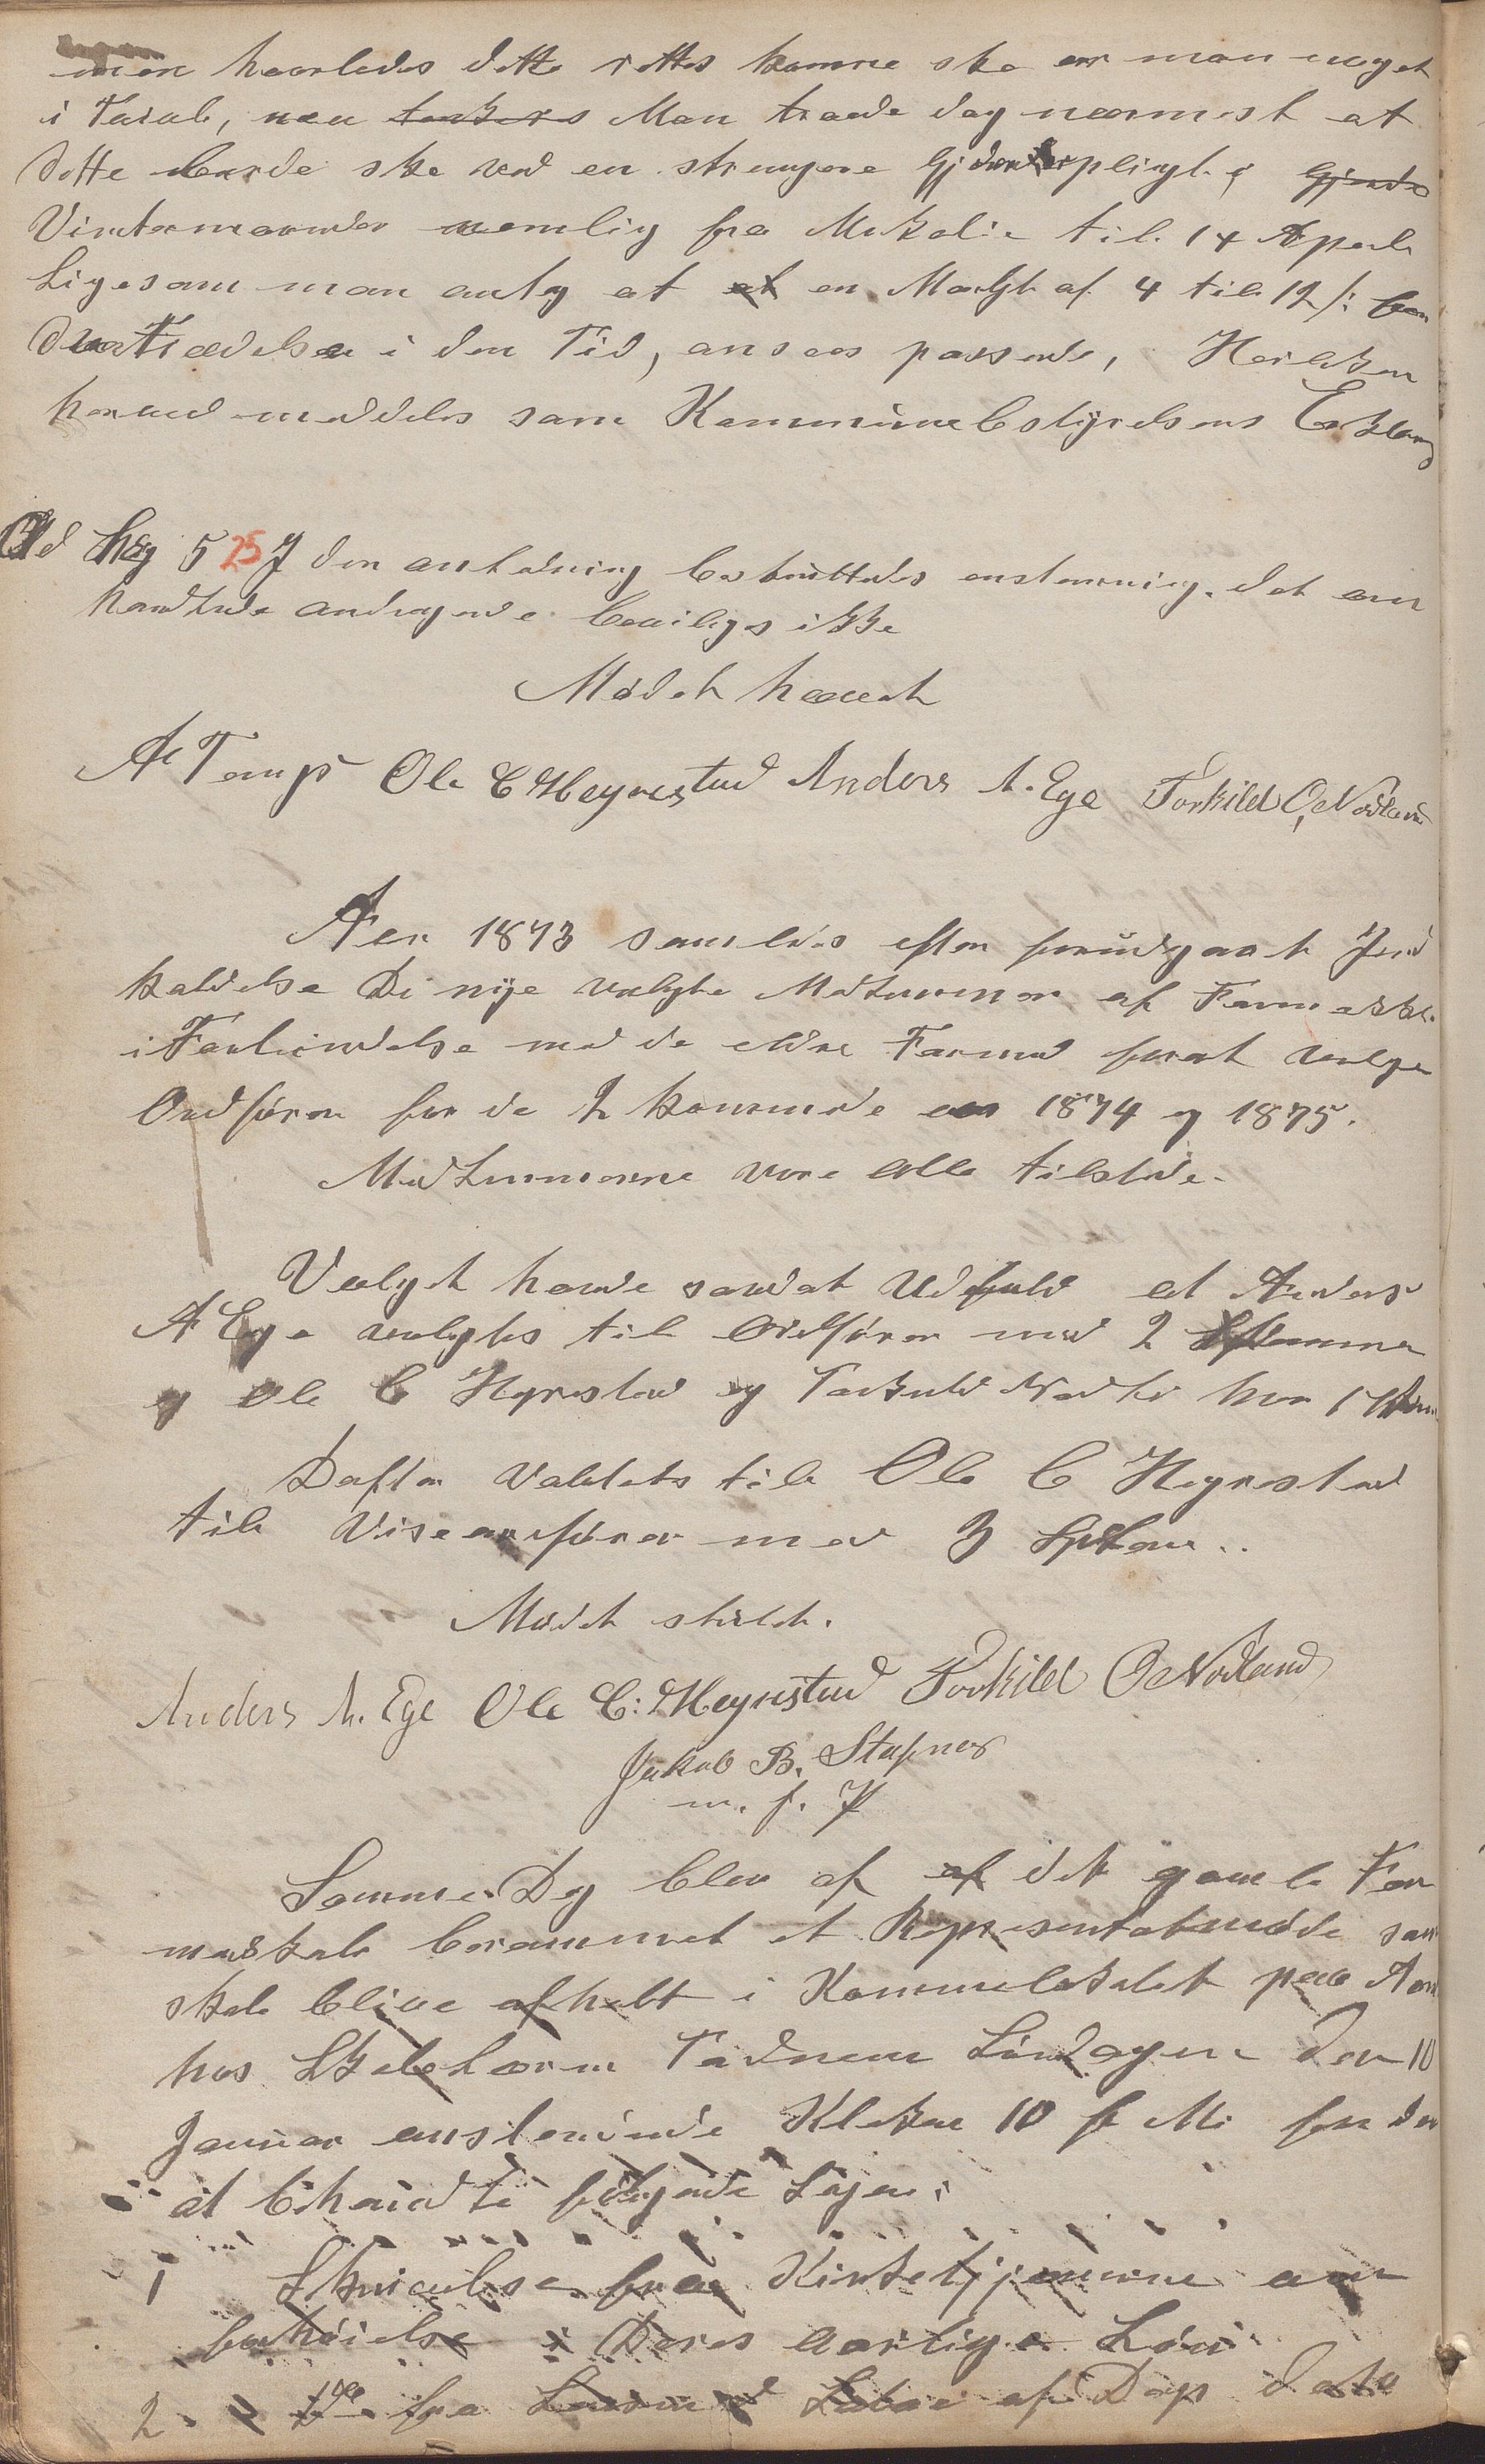 men hvorledes dette rettes kunne ske er man meget
i Tvivl, men Man troede dog nærmest at
dette burde ske ved en strengere Gjæderpligt i
Vintermaaneder nemlig fra Mikkeli til 14 April
Ligesom man antog at en Mulgt af 4 til 12 /:
Overtrædelsen i den Tid, ansees passende,
herved meddeles som Kommunebestyrelsens Erklæring
Ved Sag 5 25 I den anledning besluttedes enstemmig. det om
handlede andragende bevilges ikke
Mødet hævet
Ole C Heyrestad Anders A. Ege Torkild O. Nodland
Aar 1873 samledes efter forudgaaet Ind
kaldelse De nye valgte Medlemmer af Formandsk.
i Forbindelse med de eldre Formænd forat velge
Ordfører for de 2 kommende aar 1874 og 1875.
Medlemmerne vare alle tilstede.
Valget havde saadat Udfald at Anders
A Ege valgtes til Ordfører med 2 Stemmer
og Ole C Heyrestad og Torkild Nodla hver 1 Stem
Defter valdtes til Ole C Heyrestad
til Viseordfører med 3 Stem..
Mødet sluldt.
Anders A. Ege Ole C: Heyrestad Torkild O Nodland
Jakob B. Stapnes
m. f. P
Samme Dag blev af af det gamle For
mandskab berammet et Representatmøde som
skal blive afholt i Kommulokalet paa
hos Skolelærer Tødnem Lørdagen den 10
Januar anstundende Klokken 10 f M. for der
at behandle følgende Sager:
1 Skrivelse fra Kirketjenerne om
forhøielse i Deres aarlige Løn
2. do fra af Dags Dato